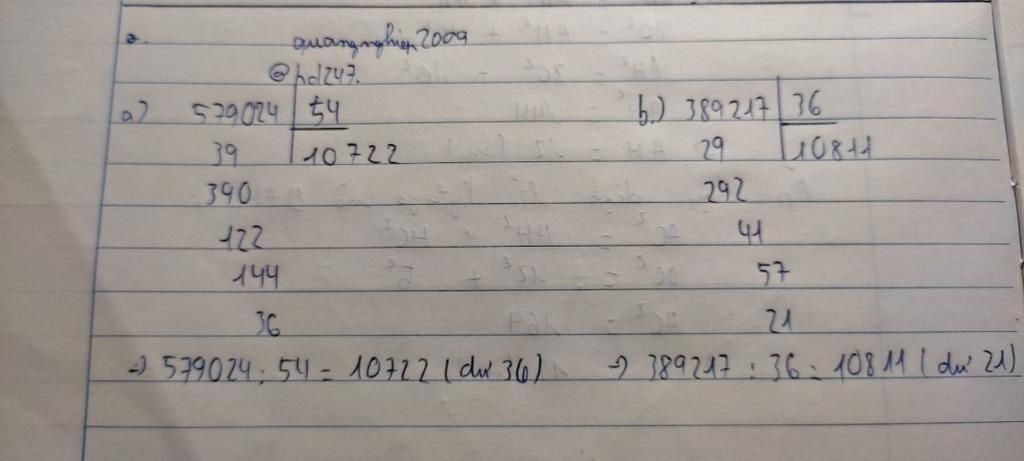 a.
quangnghiep2009
@hd247.
a) 579024 54
39 10722
390
122
144
36
=> 579024 : 54 = 10722 (dư 36)
b.) 389217 36
29 10811
292
41
57
21
=> 389217 : 36 = 10811 (dư 21)